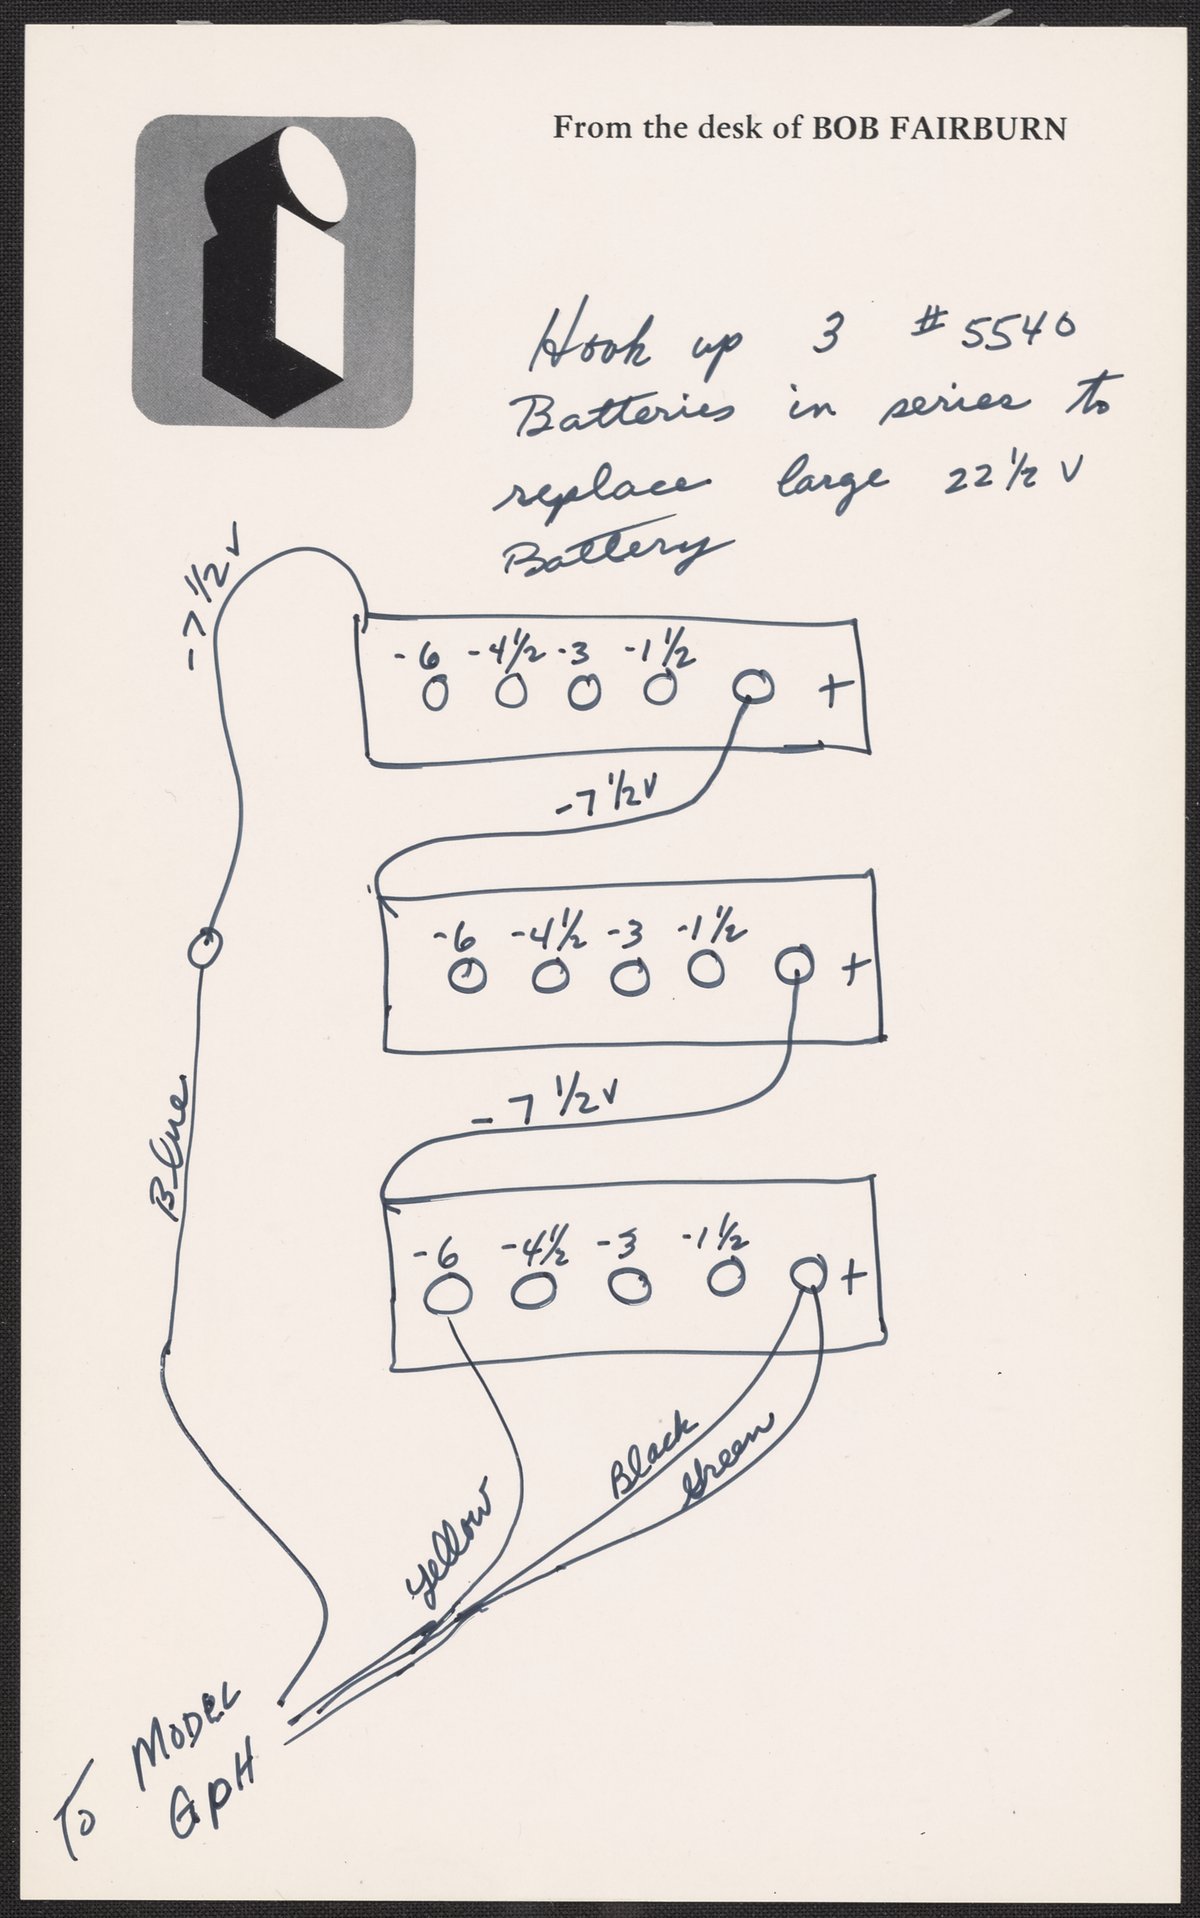 From the desk of BOB FAIRBURN
Hook up 3 #5540
Batteries in series to
replace large 22 1/2 V
Battery
-7 1/2 V
-6 -4 1/2 -3 -1 1/2
+
-7 1/2 V
-6 -4 1/2 -3 -1 1/2
+
-7 1/2 V
Blue
-6 -4 1/2 -3 -1 1/2
+
Black
Green
Yellow
To MODEL
GPH